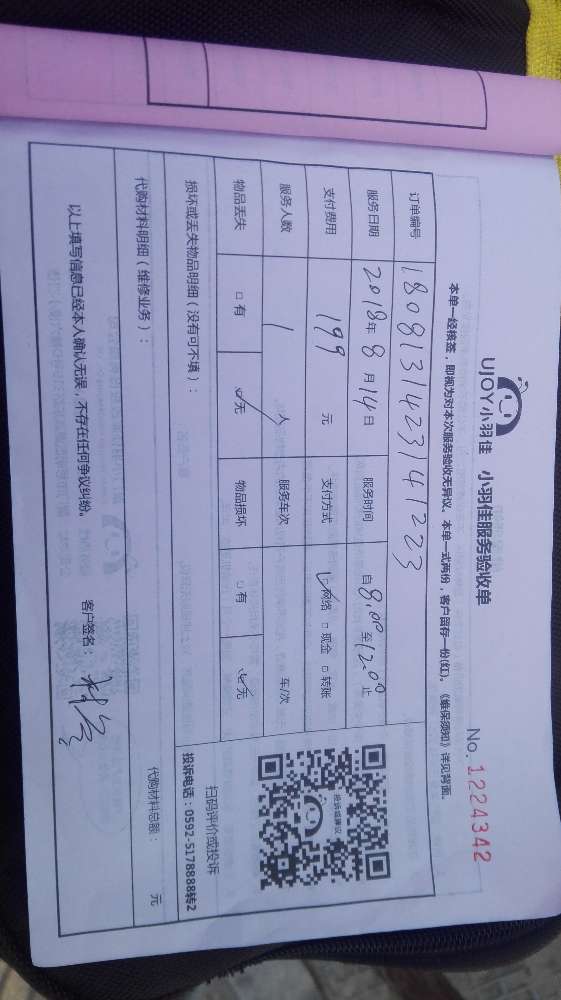 UJOY小羽佳 小羽佳服务验收单
No. 1224342
本单一经核签，即视为对本次服务验收无异议。本单一式两份，客户留存一份(红)。《维保须知》详见背面。
订单编号 1808131423141223
服务日期 2018年8月14日 服务时间 自8:00至12:00止
支付费用 199 元 支付方式 ☑网络 □现金 □转账
服务人数 1 人 服务车次 车/次
物品丢失 □有 ☑无 物品损坏 □有 ☑无
投诉或建议
扫码评价或投诉
投诉电话：0592-5178888转2
损坏或丢失物品明细（没有可不填）：
代购材料明细（维修业务）： 代购材料总额： 元
以上填写信息已经本人确认无误，不存在任何争议纠纷。 客户签名：